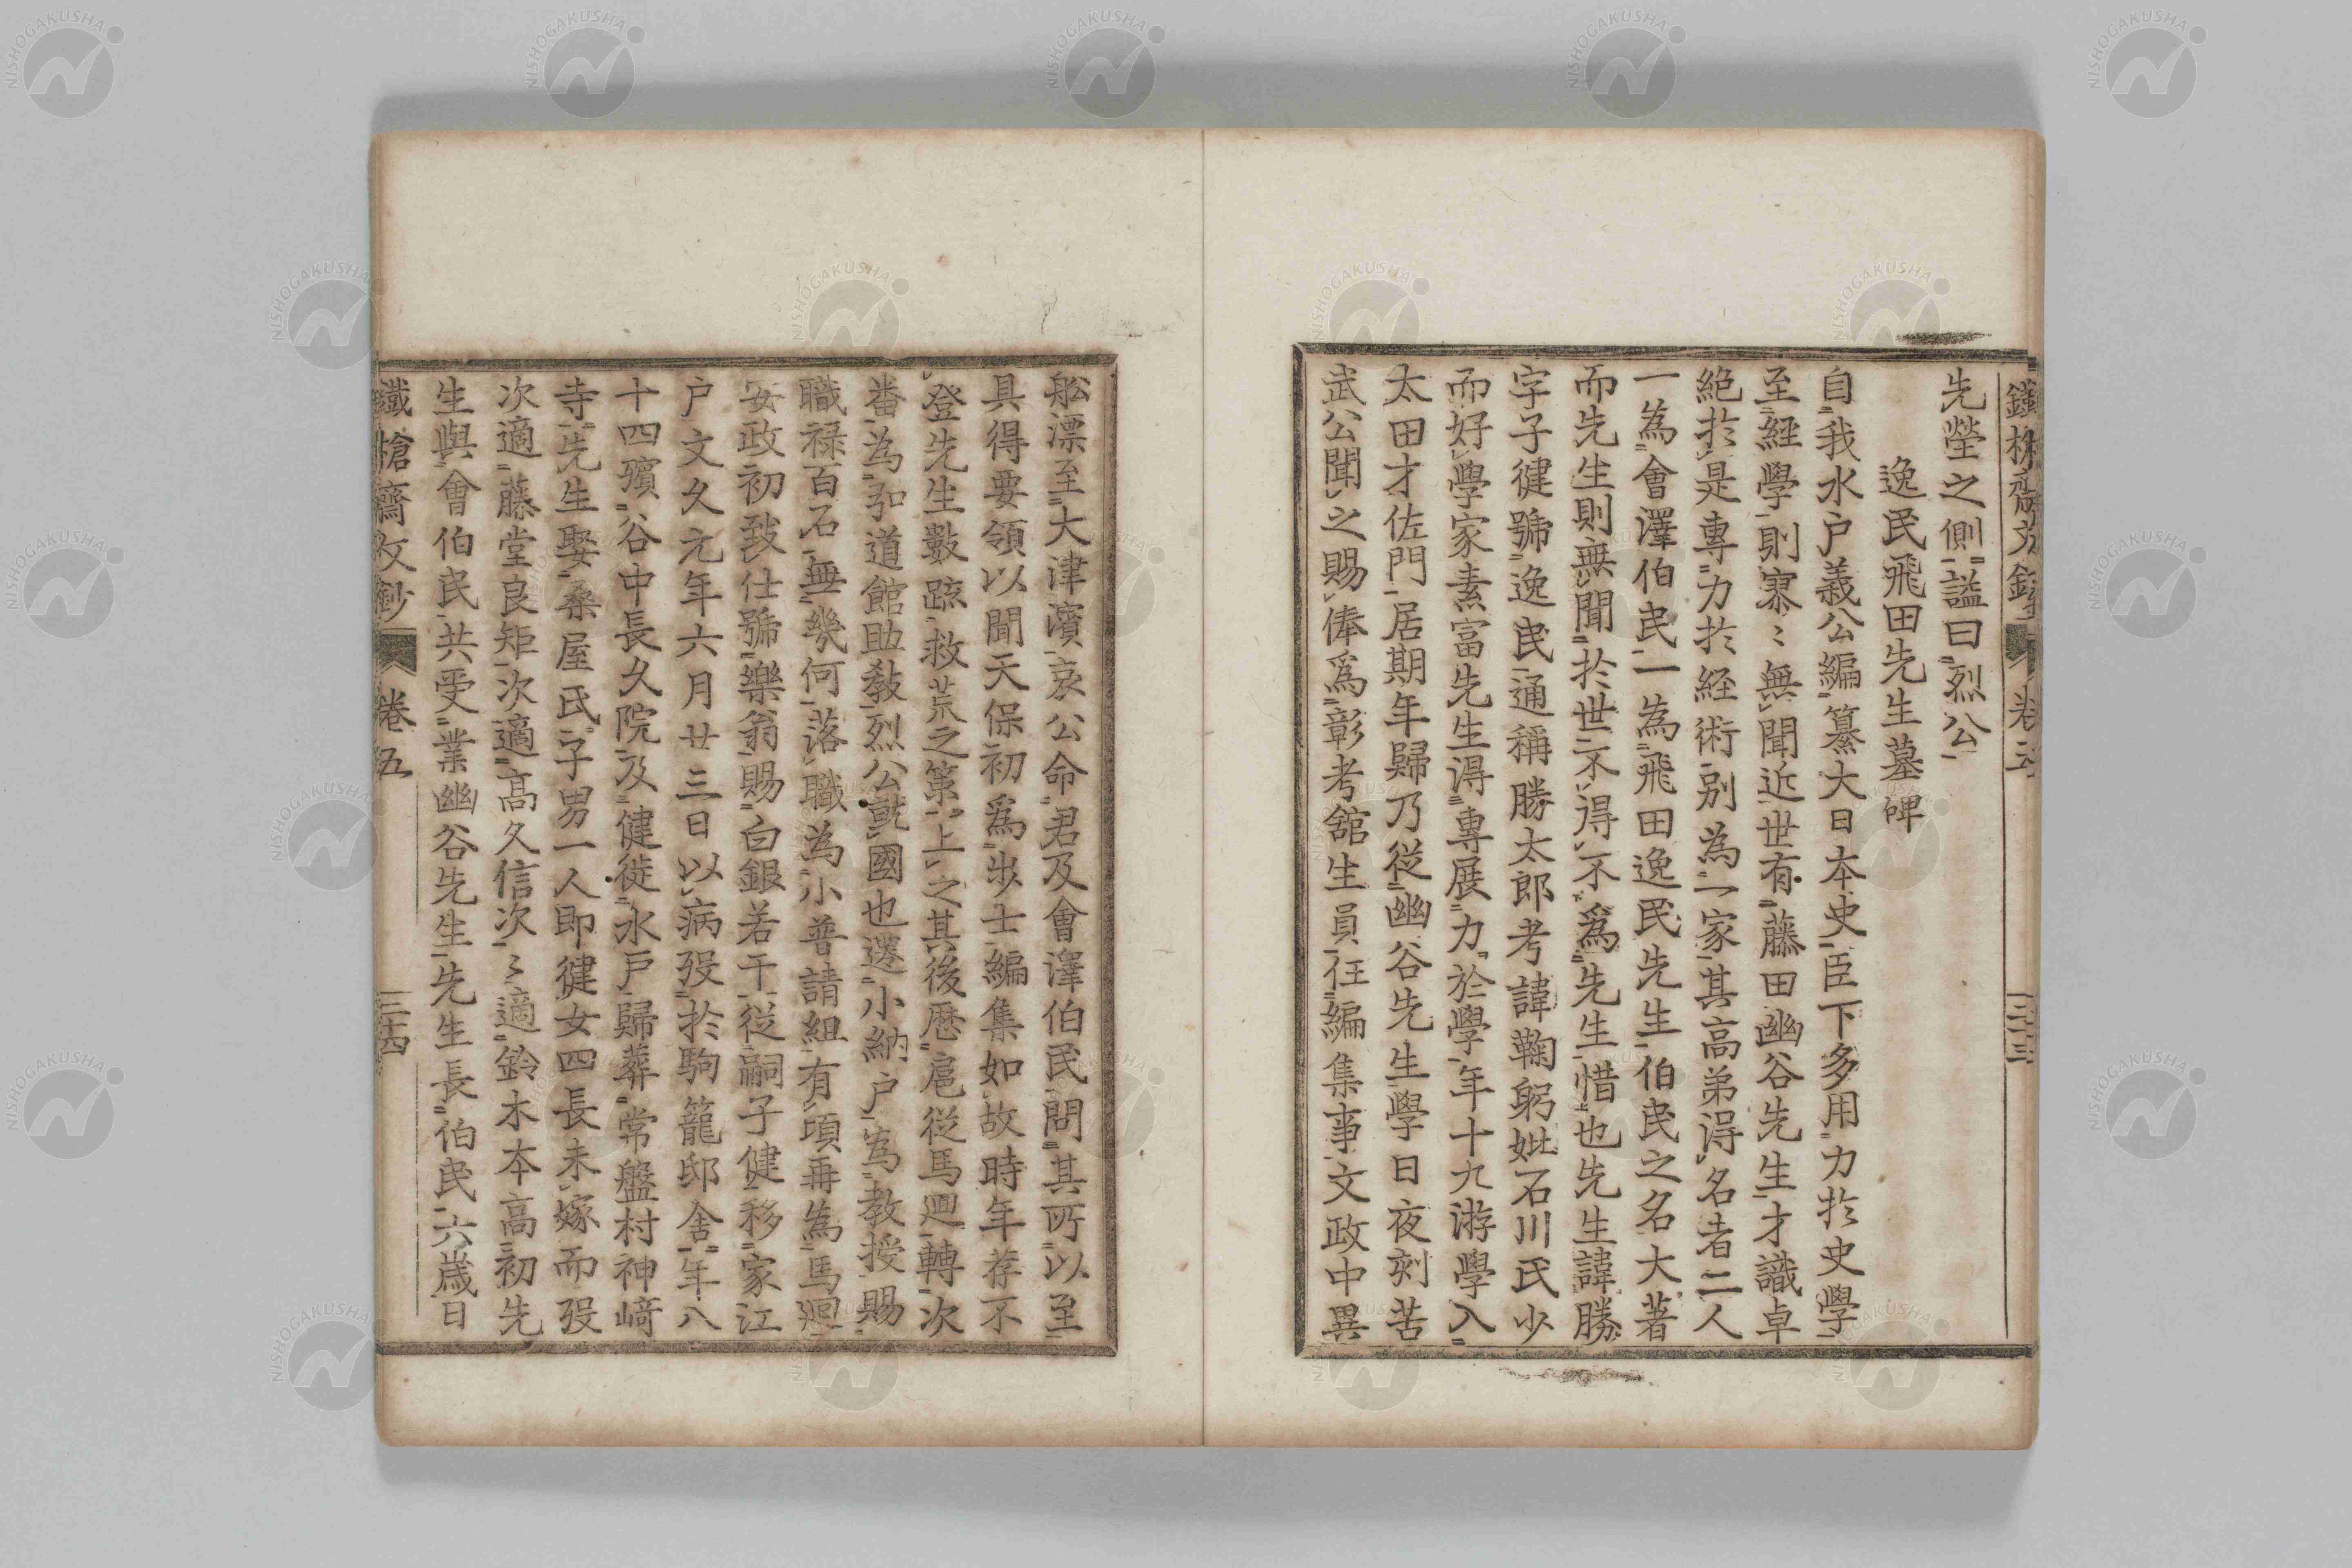 先塋之側謚曰烈公
逸民飛田先生墓碑
自我水户義公編纂大日本史臣下多用力於史學
至經學則寥〻無聞近世有藤田幽谷先生才識卓
絶於是專力於経術別為一家其高弟得名者二人
一為會澤伯民一為飛田逸民先生伯民之名大著
而先生則無聞於世不得不爲先生惜也先生諱勝
字子健號逸民通稱勝太郎考諱鞠躬妣石川氏少
而好學家素富先生得專展力於學年十九游學入
太田才佐門居期年歸乃従幽谷先生學日夜刻苦
武公聞之賜俸爲彰考舘生員在編集事文政中異
舩漂至大津濱哀公命君及會澤伯民問其所以至
具得要領以聞天保初爲歩士編集如故時年荐不
登先生數䟽救荒之策上之其後歴扈従馬廻轉次
番為弘道館助教烈公就國也遷小納户為教授賜
職禄百石無幾何落職為小普請組有項再為馬廻
安政初致仕號樂翁賜白銀若干従嗣子健移家江
户文久元年六月廿三日以病歿於駒籠邸舍年八
十四殯谷中長久院及健徙水戸歸葬常盤村神﨑
寺先生娶桑屋氏子男一人即健女四長未嫁而歿
次適藤堂良矩次適髙久信次〻適鈴木本高初先
生與會伯民共受業幽谷先生先生長伯民六歳日
鐵槍齋文鈔　卷五　三十四